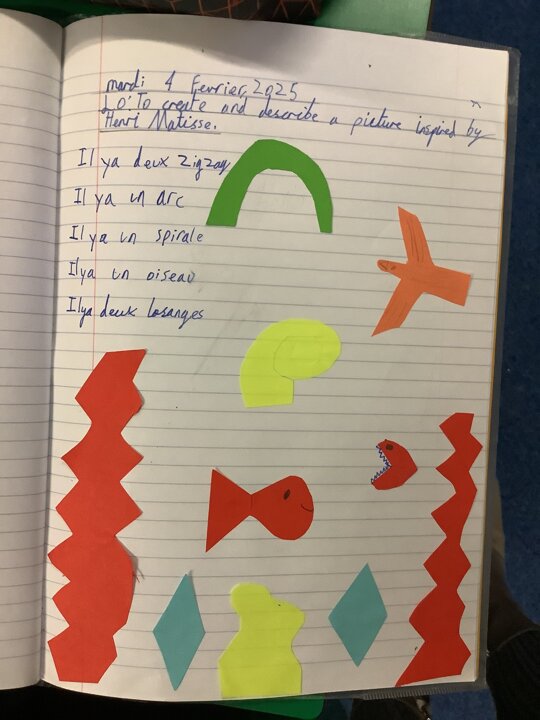 mardi 4 Fevrier 2025
LO: To create and describe a picture inspired by
Henri Matisse.
Il ya deux zigzag
Il ya un arc
Il ya un spirale
Il ya un oiseau
Il ya deux losanges